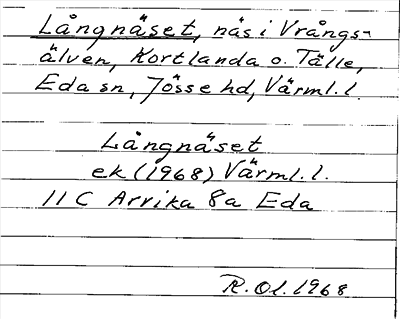 Långnäset, näs i Vrångs-
älven, Kortlanda o. Tälle,
Eda sn, Jösse hd, Värml. l.
Långnäset
ek (1968) Värml. l.
11 C Arvika 8a Eda
R. Ol. 1968